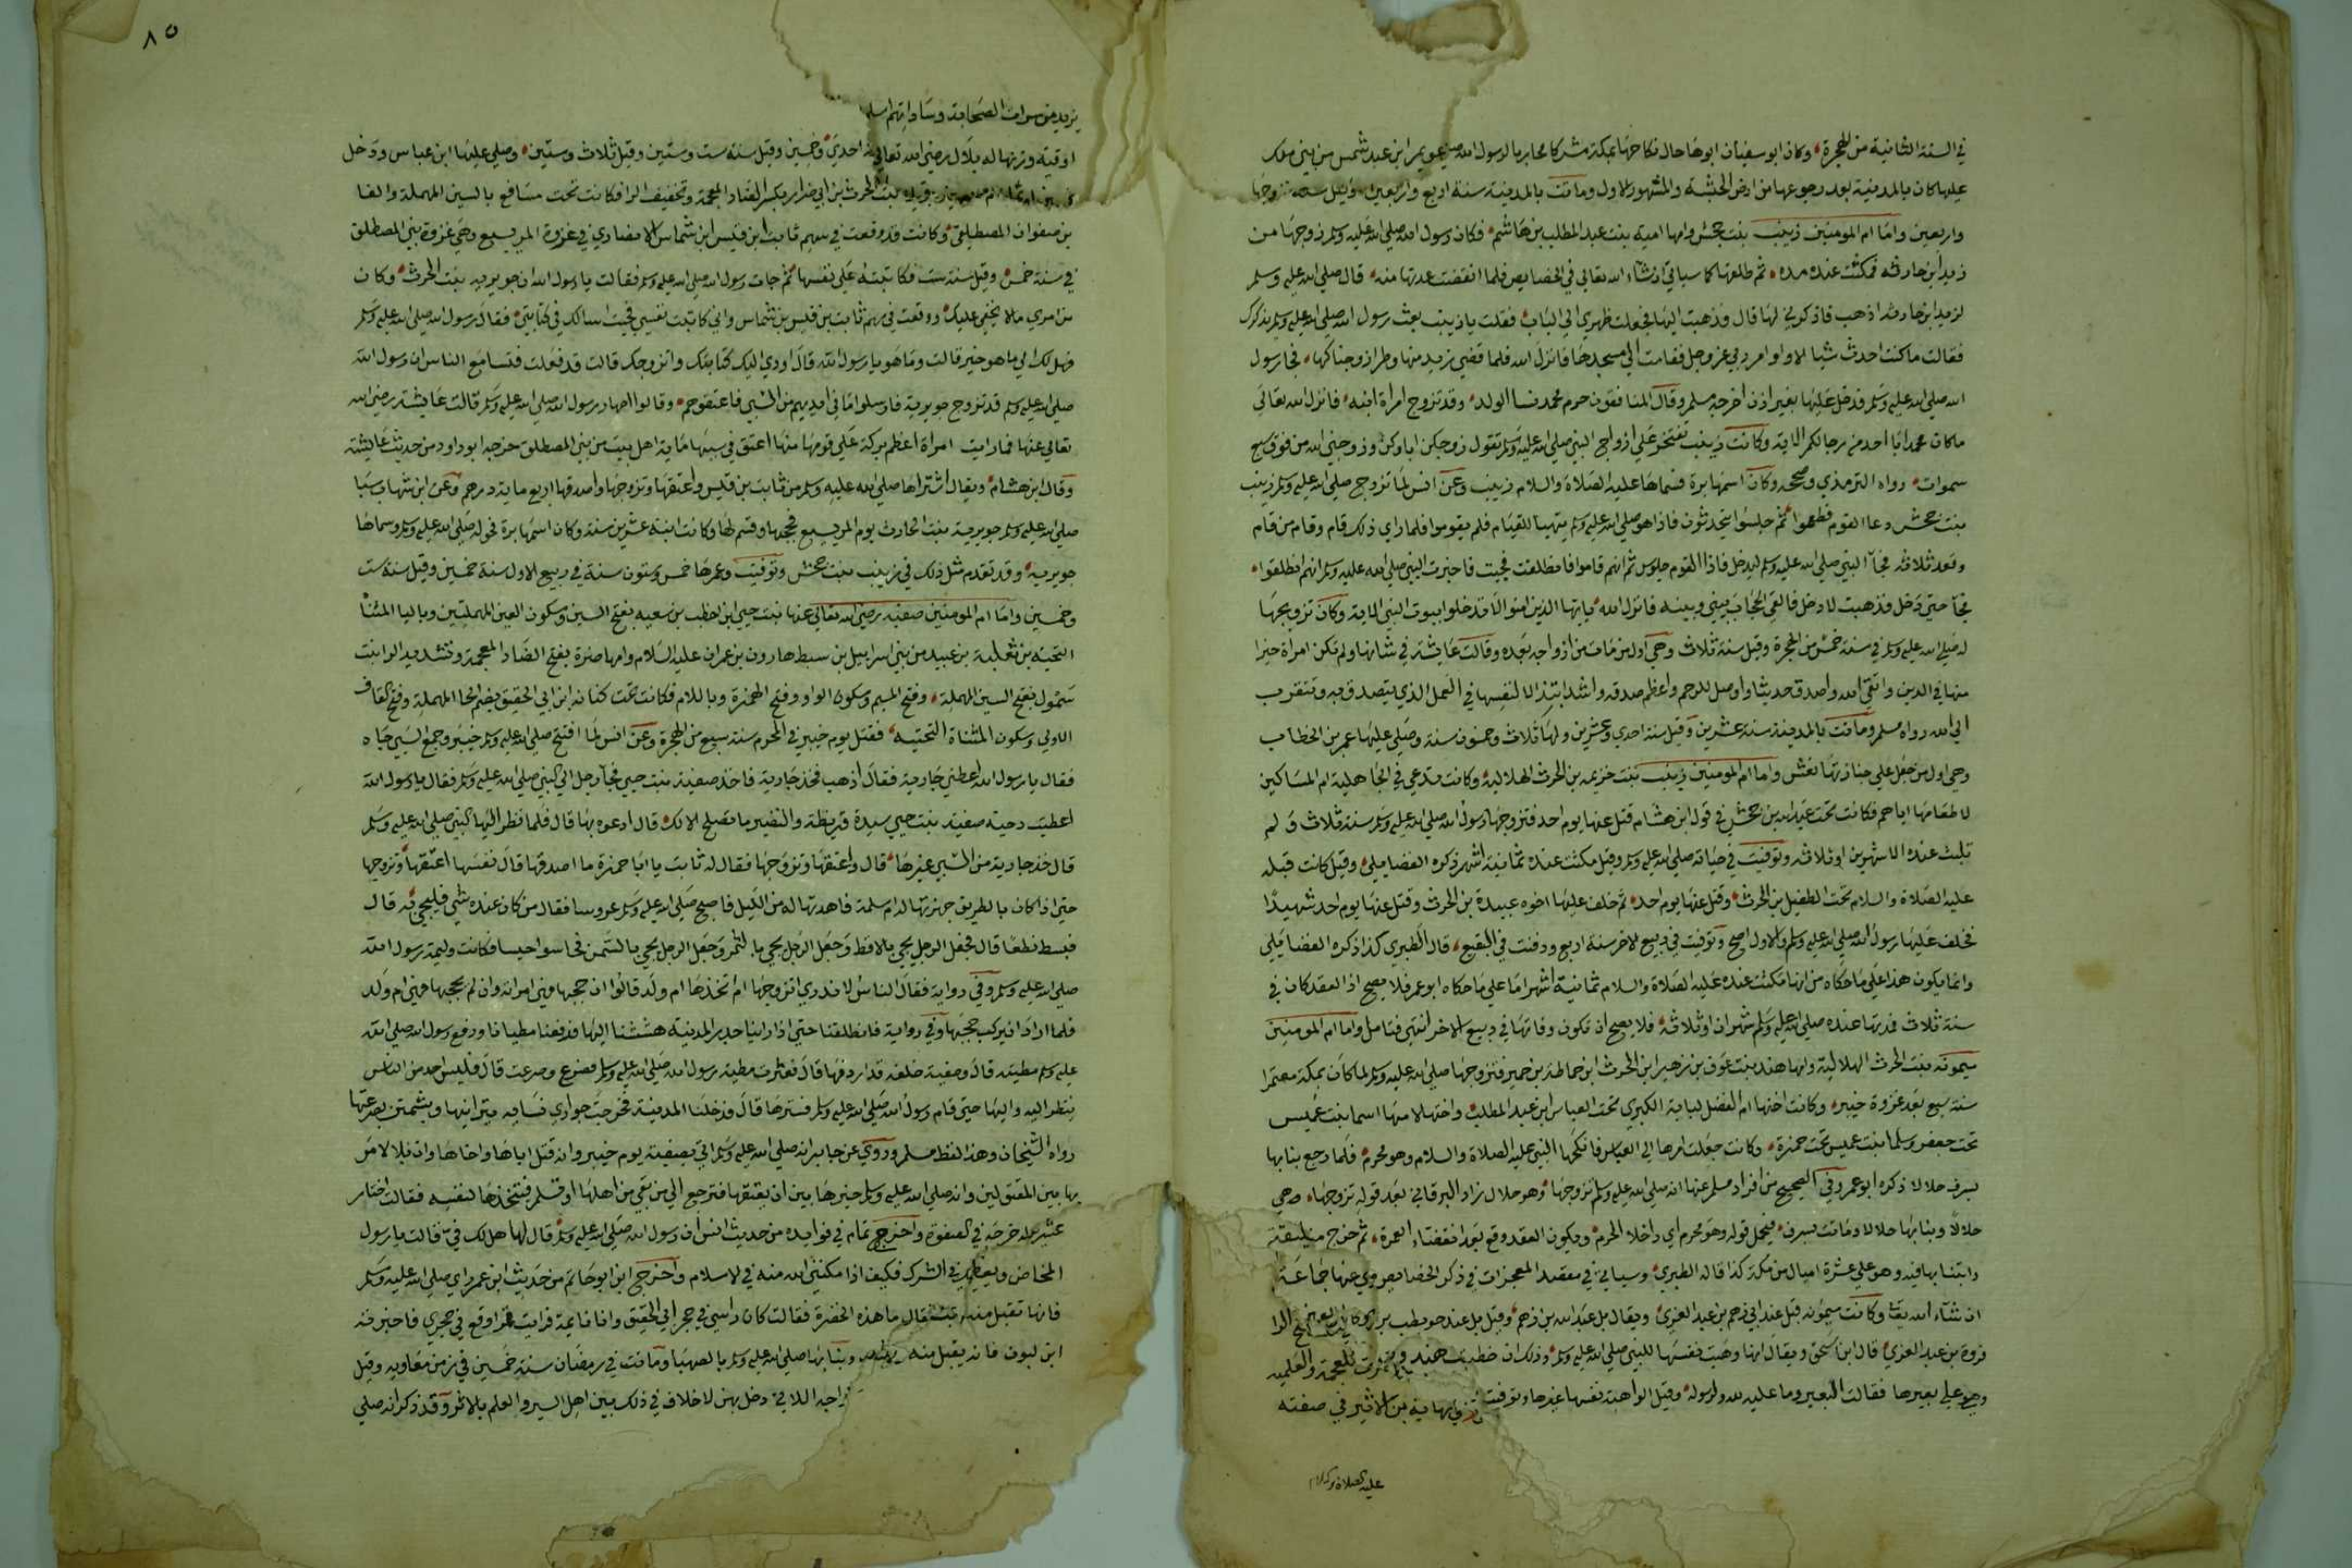 في السنة الثانية من الهجرة، وكان ابو سفيان ابوها حال نكاحها بمكة مشركا محاربا لرسول الله
عليها كان بالمدينة بعد رجوعها من ارض الحبشة والمشهور الاول وماتت بالمدينة سنة اربع واربعين
واربعين واما ام المومنين زينب بنت جحش وامها اميه بنت عبد المطلب بن هاشم، فكان رسول الله صلى الله عليه وسلم زوجها من
زيد ابن حارثه فمكثت عنده مده، ثم طلقها كما سياتي ان شاء الله تعالى في الخصايص فلما انقضت عدتها منه، قال صلى الله عليه وسلم
لزيد ابن حارثه اذهب فاذكرني لها قال فذهبت اليها فجعلت ظهري الى الباب فقلت يا زينب بعث رسول الله صلى الله عليه وسلم يذكرك
فقالت ما كنت احدث شيا الا واوامر ربي عز وجل فقامت الى مسجدها فانزل الله فلما قضى زيد منها وطرا زوجناكها، فجا رسول
الله صلى الله عليه وسلم فدخل عليها بغير اذن اخرجه مسلم وقال المنافقون حرم محمد نسا الولد، وقد تزوج امراة ابنه، فانزل الله تعالى
ما كان محمد ابا احد من رجالكم الاية وكانت زينب تفتخر على ازواج النبي صلى الله عليه وسلم تقول زوجكن اباوكن وزوجني الله من فوق سبع
سموات، رواه الترمذي وصححه وكان اسمها برة فسماها عليه الصلاة والسلام زينب وعن انس لما تزوج صلى الله عليه وسلم زينب
بنت جحش دعا القوم فطعموا ثم جلسوا يتحدثون فاذا هو صلى الله عليه وسلم يتهيا للقيام فلم يقوموا فلما راى ذلك قام وقام من قام
وقعد ثلاثه فجآ النبي صلى الله عليه وسلم ليدخل فاذا القوم جلوس ثم انهم قاموا فانطلقت فجيت فاخبرت النبي صلى الله عليه وسلم انهم انطلقوا،
فجآ حتى دخل فذهبت لادخل فالقى الحجاب بيني وبينه فانزل الله يايها الذين امنوا لا تدخلوا بيوت النبي الاية وكان تزويجها
له صلى الله عليه وسلم في سنة خمس من الهجرة وقيل سنة ثلاث وهي اول من مات من ازواجه بعده وقالت عايشة في شانها ولم تكن امراة خيرا
منها في الدين واتقى لله واصدق حديثا واوصل للرحم واعظم صدقه واشد ابتذالا لنفسها في العمل الذي يتصدق به وتتقرب
الى الله رواه مسلم وماتت بالمدينة سنة عشرين وقيل سنة احدي وعشرين ولها ثلاث وخمسون سنة وصلى عليها عمر بن الخطاب
وهي اول من جعل على جنازتها نعش واما ام المومنين زينب بنت خزيمه بن الحرث الهلاليه وكانت تدعي في الجاهلية ام المساكين
لاطعامها اياهم فكانت تحت عبد الله بن جحش في قول ابن هشام قتل عنها يوم احد فتزوجها رسول الله صلى الله عليه وسلم سنة ثلاث ولم
تلبث عنده الا شهرين او ثلاثه وتوفيت في حياته صلى الله عليه وسلم وقيل مكثت عنده ثمانية اشهر ذكره الفضايلي وقيل كانت قبله
عليه الصلاة والسلام تحت الطفيل بن الحرث، وقتل عنها يوم احد، ثم خلف عليها اخوه عبيدة بن الحرث وقتل عنها يوم احد شهيدا
فخلف عليها رسول الله صلى الله عليه وسلم والاول اصح وتوفيت في ربيع الاخر سنة اربع ودفنت في البقيع، قال الطبري كذا ذكره الفضايلي
وانما يكون هذا على ما حكاه من انها مكثت عنده عليه الصلاة والسلام ثمانية اشهر اما على ما حكاه ابو عمر فلا يصح اذ العقد كان في
سنة ثلاث ومدتها عنده صلى الله عليه وسلم شهران او ثلاثة فلا يصح ان تكون وفاتها في ربيع الاخر انتهى فتامل واما ام المومنين
ميمونه بنت الحرث الهلالية وامها هند بنت عوف بن زهير ابن الحرث ابن حماطة بن حمير فتزوجها صلى الله عليه وسلم لما كان بمكة معتمرا
سنة سبع بعد غزوة خيبر، وكانت اختها ام الفضل لبابة الكبري تحت العباس ابن عبد المطلب واختها لامها اسما بنت عميس
تحت جعفر وسلما بنت عميس تحت حمزة، وكانت جعلت امرها الى العباس فانكحها النبي عليه الصلاة والسلام وهو محرم فلما رجع بنا بها
بسرف حلالا ذكره ابو عمر وفي الصحيح من افراد مسلم عنها انه صلى الله عليه وسلم تزوجها وهو حلال زاد البرقاني بعد قوله تزوجها،
حلالا وبنا بها حلالا وماتت بسرف، فيحمل قوله وهو محرم اي داخلا الحرم ويكون العقد وقع بعد انقضاء العمرة، ثم خرج
وابتنا بها فيه وهو على عشرة اميال من مكة كذا قاله الطبري وسياتي في مقصد المعجزات في ذكر الخصايص عنها جماعة
ان شاء الله تعا وكانت ميمونه قبل عند ابي رهم بن عبد العزي ويقال بل عبد الله بن ابي رهم وقيل بل عند حويطب
فروة بن عبد العزي قال ابن اسحق ويقال انها وهبت نفسها للنبي صلى الله عليه وسلم وذلك ان خطبت
وهي على بعيرها فقالت البعير وما عليه لله ولرسوله وقيل الواهبة نفسها غيرها وتوفيت
عليه الصلاة والسلام
٨٥
يزيد من سراة الصحابة وساداتهم
اوقية وزنها له بلال رضي الله تعالى احدي وخمسين وقيل سنة ست وستين وقيل ثلاث وستين، وصلى عليها ابن عباس ودخل
بنت الحرث بن ابي ضرار بكسر الضاد المعجمة وتخفيف الرا فكانت تحت مسافع بالسين المهملة والفا
بن صفوان المصطلقي وكانت قد وقعت في سهم ثابت ابن قيس ابن شماس الانصاري في غزوة المريسيع وهي غزوة بني المصطلق
في سنة خمس، وقيل سنة ست فكاتبته على نفسها ثم جات رسول الله صلى الله عليه وسلم فقالت يا رسول الله ان جويريه بنت الحرث، وكان
من امري ما لا يخفى عليك، ووقعت في سهم ثابت بن قيس بن شماس واني كاتبت نفسي فجيت اسالك في كتابتي، فقال رسول الله صلى الله عليه وسلم
فهل لك الى ما هو خير قالت وما هو يا رسول الله قال اودي اليك كتابتك واتزوجك قالت قد فعلت فتسامع الناس ان رسول الله
صلى الله عليه وسلم قد تزوج جويرية فارسلوا ما في ايديهم من السبي فاعتقوهم، وقالوا اصهار رسول الله صلى الله عليه وسلم قالت عايشة رضي الله
تعالى عنها فما رايت امراة اعظم بركة على قومها منها اعتق في سببها ماية اهل بيت من بني المصطلق خرجه ابو داود من حديث عايشة
وقال ابن هشام، ويقال اشتراها صلى الله عليه وسلم من ثابت بن قيس واعتقها وتزوجها واصدقها اربع ماية درهم وعن ابن شهاب سبا
صلى الله عليه وسلم جويرية بنت الحارث يوم المريسيع فحجبها وقسم لها وكانت ابنة عشرين سنة وكان اسمها برة فحوله صلى الله عليه وسلم وسماها
جويريه، وقد تقدم مثل ذلك في زينب بنت جحش وتوفيت وعمرها خمس وستون سنة في ربيع الاول سنة خمسين وقيل سنة ست
وخمسين واما ام المومنين صفيه رضي الله تعالى عنها بنت حيي ابن اخطب بن سعيه بفتح السين وسكون العين المهملتين وباليا المثناة
التحتيه بن ثعلبة بن عبيد من بني اسراييل بن سبط هارون بن عمران عليه السلام وامها ضرة بفتح الضاد المعجمة وتشديد الرا بنت
سمؤل بفتح السين المهملة، وفتح الميم وسكون الواو وفتح الهمزة وباللام فكانت تحت كنانه ابن ابي الحقيق بضم الحا المهملة وفتح القاف
الاولى وسكون المثناة التحتيه، فقتل يوم خيبر في المحرم سنة سبع من الهجرة وعن انس لما افتتح صلى الله عليه وسلم خيبر وجمع السبي جاه
فقال يا رسول الله اعطني جارية فقال اذهب فخذ جارية فاخذ صفية بنت حيي فجآ رجل الى النبي صلى الله عليه وسلم فقال يا رسول الله
اعطيت دحيه صفيه بنت حيي سيدة قريظة والنضير ما تصلح الا لك، قال ادعوه بها قال فلما نظر اليها النبي صلى الله عليه وسلم
قال خذ جارية من السبي غيرها، قال واعتقها وتزوجها فقال له ثابت يا ابا حمزة ما اصدقها قال نفسها اعتقها وتزوجها
حتى اذا كان بالطريق جهزتها له ام سلمة فاهدتها له من الليل فاصبح صلى الله عليه وسلم عروسا فقال من كان عنده شي فليجي به قال
فبسط نطعا قال فجعل الرجل يجي بالاقط وجعل الرجل يجي بالتمر وجعل الرجل يجي بالسمن فحاسوا حيسا فكانت وليمة رسول الله
صلى الله عليه وسلم وفي رواية فقال الناس لا ندري اتزوجها ام اتخذها ام ولد قالوا ان حجبها فهي امراته وان لم يحجبها فهي ام ولد
فلما اراد ان يركب حجبها وفي رواية فانطلقنا حتى اذا راينا جدر المدينة هششنا اليها فدفعنا مطيانا ودفع رسول الله صلى الله
عليه وسلم مطيته قال وصفية خلفه قد اردفها قال فعثرت مطية رسول الله صلى الله عليه وسلم فصرع وصرعت قال فليس احد من الناس
ينظر اليه واليها حتى قام رسول الله صلى الله عليه وسلم فسترها قال فدخلنا المدينة فخرجت جواري نسايه يتراينها ويشمتن بصرعتها
رواه الشيخان وهذا لفظ مسلم وروي عن جابر انه صلى الله عليه وسلم اتى بصفية يوم خيبر وانه قتل اباها واخاها وان بلالا مر
بها بين المقتولين وانه صلى الله عليه وسلم خيرها بين ان يعتقها فترجع الى من بقي من اهلها او تسلم فيتخذها لنفسه فقالت اختار
خرجه في الصفوة واخرج تمام في فوايده من حديث انس ان رسول الله صلى الله عليه وسلم قال لها هل لك في، قالت يا رسول
في الشرك فكيف اذا مكنني الله منه في الاسلام واخرج ابن ابو حاتم من حديث ابن عمر راى صلى الله عليه وسلم
فقال ما هذه الخضرة فقالت كان راسي في حجر ابن ابي الحقيق وانا نايمة فرايت قمرا وقع في حجري فاخبرته
وبنا بها صلى الله عليه وسلم بالصهبا وماتت في رمضان سنة خمسين في زمن معاويه وقيل
اللاتي دخل بهن لا خلاف في ذلك بين اهل السير والعلم بالاثر وقد ذكر انه صلى